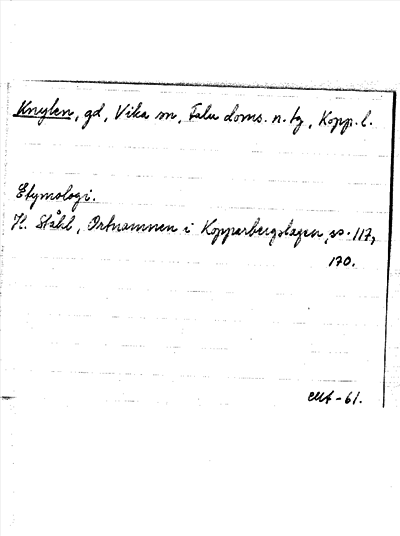 Knylen, gd, Vika sn, Falu doms. n. tg, Kopp. l.
Etymologi.
H. Ståhl, Ortnamnen i Kopparbergslagen, ss. 117,
170.
-61.